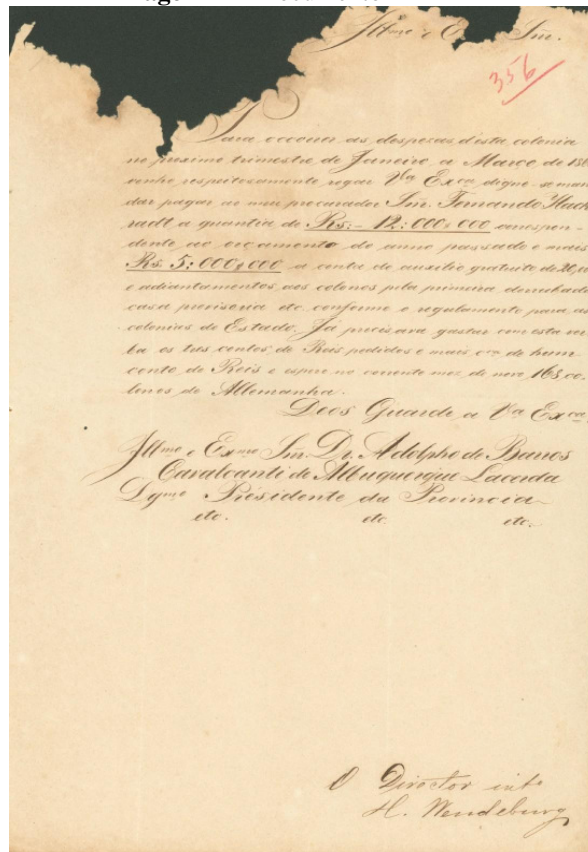 Illmo e E Snr.
356
Para occorrer as despezas d'esta colonia
no proximo trimestre de Janeiro a Março de 186
venho respeitosamente rogar Va Exca digne-se man
dar pagar ao meu procurador Snr. Fernando Hack
radt a quantia de Rs:- 12:000$000 correspon-
dente ao orçamento do anno passado e mais
Rs. 5:000$000 a conta do auxilio gratuito de
e adiantamentos aos colonos pela primeira derrubada
casa provisoria etc conforme o regulamento para as
colonias do Estado. Já precisava gastar com esta ver
ba os tres contos de Reis pedidos e mais cca de hum
conto de Reis e espero no corrente mez de novo 168 co
lonos de Allemanha.
Deos Guarde a Va Exca
Illmo e Exmo Snr. Dr. Adolpho de Barros
Cavalcanti de Albuquerque Lacerda
Dgmo Presidente da Provincia
etc. etc. etc.
O Director into
H. Wendeburg